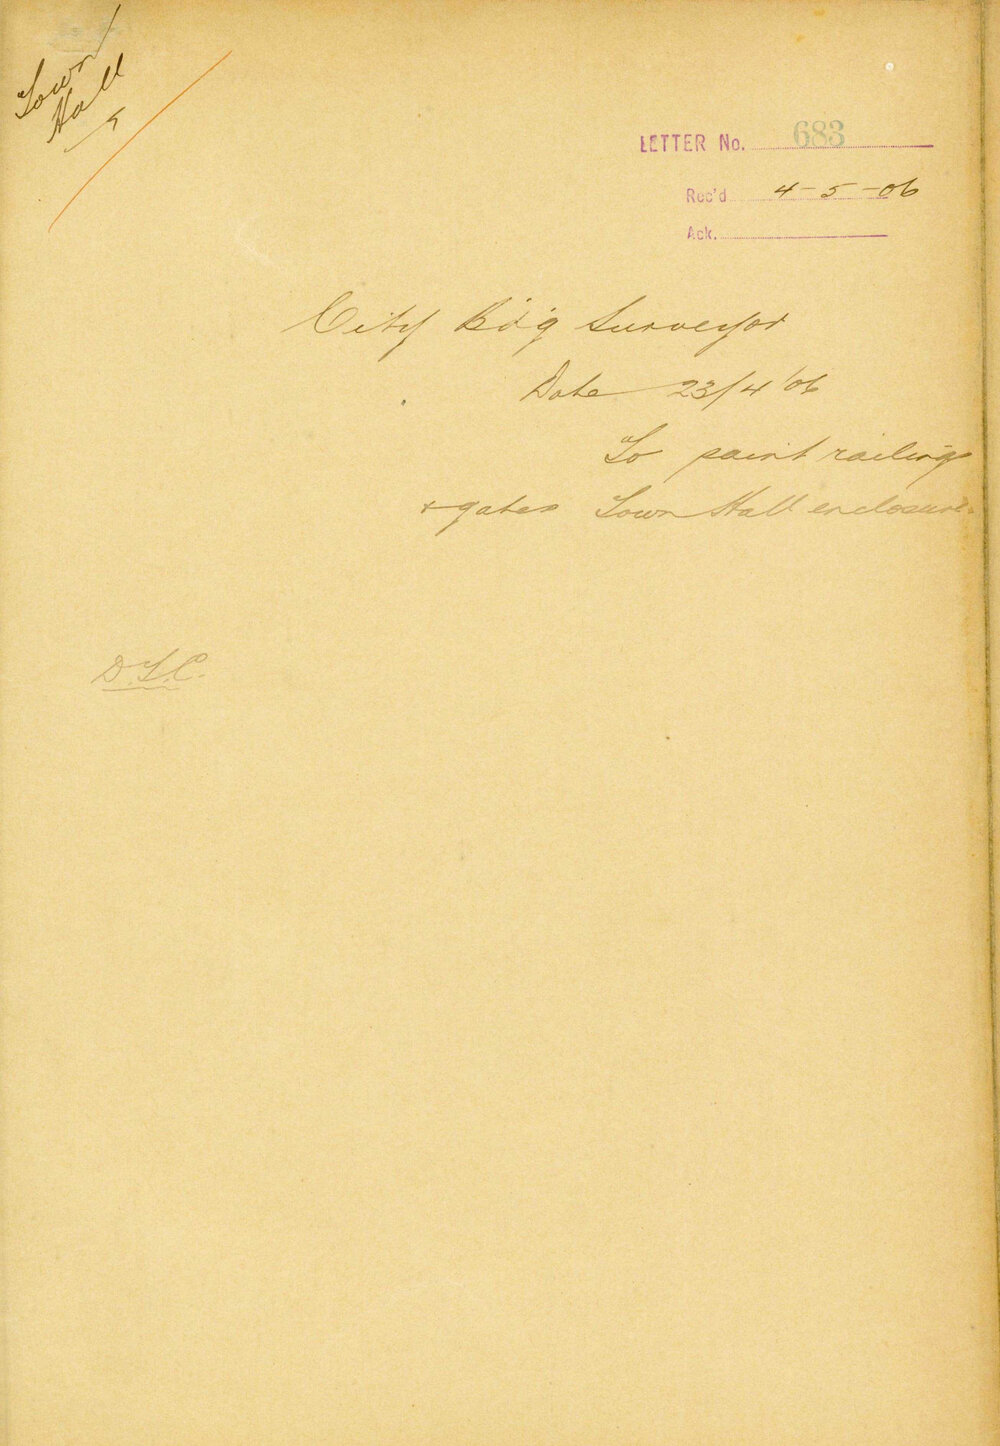 Town
Hall
LETTER No. 683
Rec'd 4-5-06
Ack.
City B'd'g Surveyor
Date 23/4/06
To paint railings
+ gates Town Hall enclosure.
D.T.C.